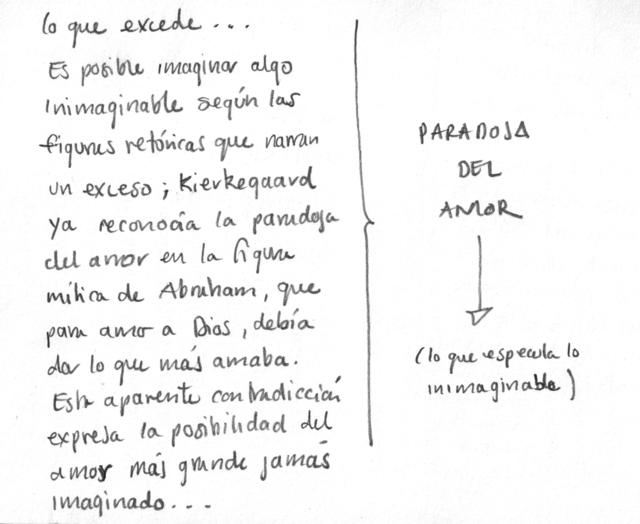 lo que excede...
Es posible imaginar algo
inimaginable según las
figuras retóricas que narran
un exceso; Kierkegaard
ya reconocía la paradoja
del amor en la figura
mítica de Abraham, que
para amar a Dios, debía
dar lo que más amaba.
Esta aparente contradicción
expresa la posibilidad del
amor más grande jamás
imaginado...
PARADOJA
DEL
AMOR
(lo que especula lo
inimaginable)